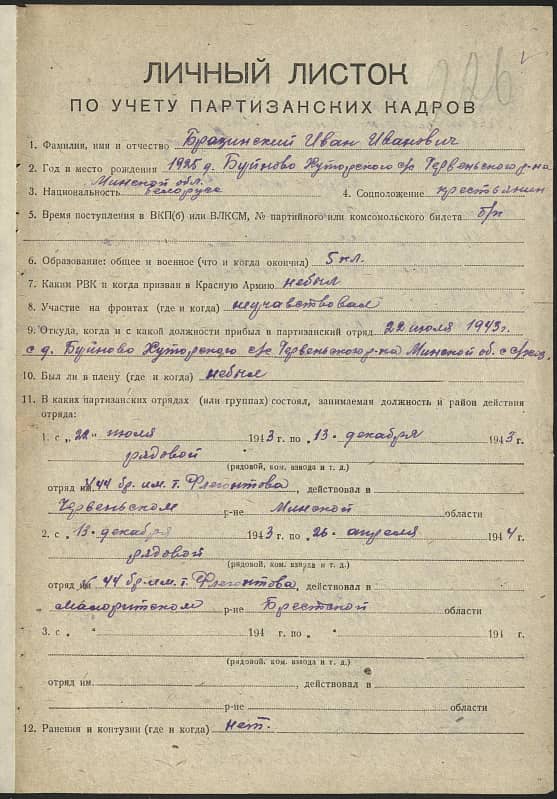 226
ЛИЧНЫЙ ЛИСТОК
ПО УЧЕТУ ПАРТИЗАНСКИХ КАДРОВ
1. Фамилия, имя и отчество Бразинский Иван Иванович
2. Год и место рождения 1925 д. Буйново Хуторского с/с Червеньского р-на
Минской обл.
3. Национальность белорусс 4. Соцположение крестьянин
5. Время поступления в ВКП(б) или ВЛКСМ, № партийного или комсомольского билета б/п
6. Образование: общее и военное (что и когда окончил) 5 кл.
7. Каким РВК и когда призван в Красную Армию небыл
8. Участие на фронтах (где и когда) неучавствовал
9. Откуда, когда и с какой должности прибыл в партизанский отряд 22 июля 1943 г.
с д. Буйново Хуторского с/с Червеньского р-на Минской об. с с/хоз.
10. Был ли в плену (где и когда) небыл
11. В каких партизанских отрядах (или группах) состоял, занимаемая должность и район действия
отряда:
1. с „22" июля 1943 г. по „13. декабря 1943 г.
рядовой
(рядовой, ком. взвода и т. д.)
отряд им. № 44 бр. им. т. Флегонтова, действовал в
Червеньском р-не Минской области
2. с „13. декабря 1943 г. по „26. апреля 1944 г.
рядовой
(рядовой, ком. взвода и т. д.)
отряд им. № 44 бр. им. т. Флегонтова, действовал в
Малоритском р-не Брестской области
3. с „ " 194 г. по „ " 194 г.
(рядовой, ком. взвода и т. д.)
отряд им. , действовал в
р-не области
12. Ранения и контузии (где и когда) нет.